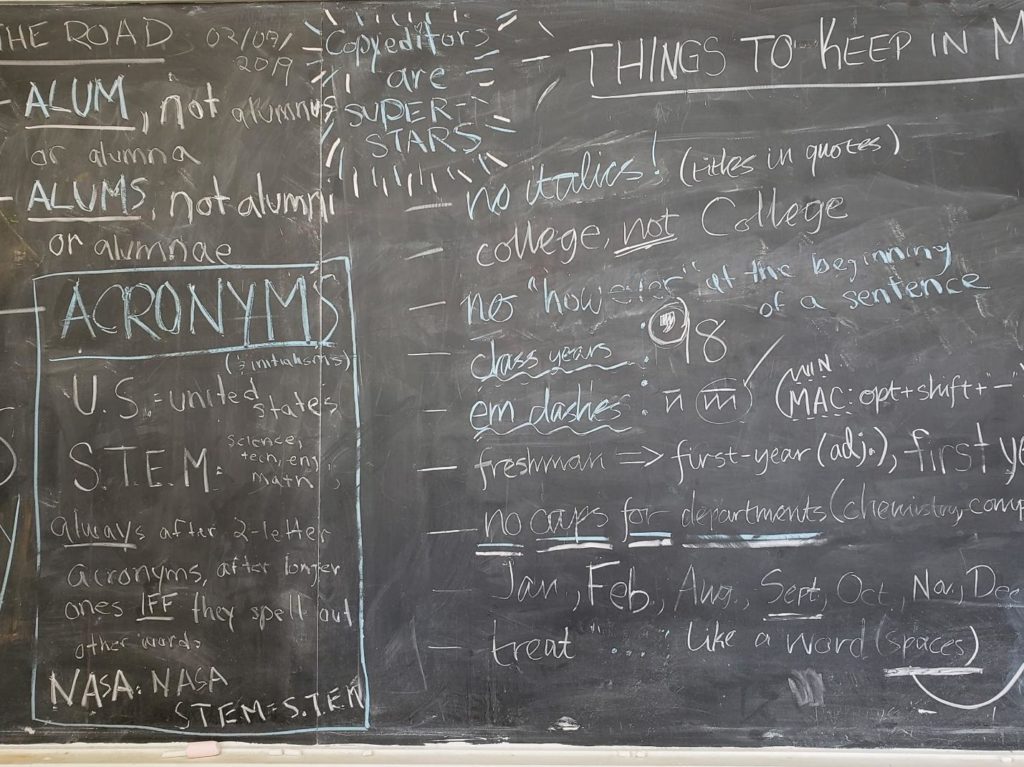 THE ROAD 02/07/
2019
- ALUM, not alumnus
or alumna
- ALUMS, not alumni
or alumnae
- ACRONYMS
(& initialisms)
U.S. = united states
S.T.E.M =
science,
tech, eng,
math
always after 2-letter
acronyms, after longer
ones IFF they spell out
other words
NASA: NASA
STEM = S.T.E.M
Copyeditors
are
SUPER-
STARS
THINGS TO KEEP IN M
- no italics! (titles in quotes)
- college, not College
- no "however" at the beginning
of a sentence
- class years : '98
- em dashes : n m ✓
WIN
(MAC: opt+shift+"-"
- freshman => first-year (adj.), first ye
- no caps for departments (chemistry, comp
- Jan, Feb., Aug., Sept, Oct., Nov., Dec
- treat "..." like a word (spaces)